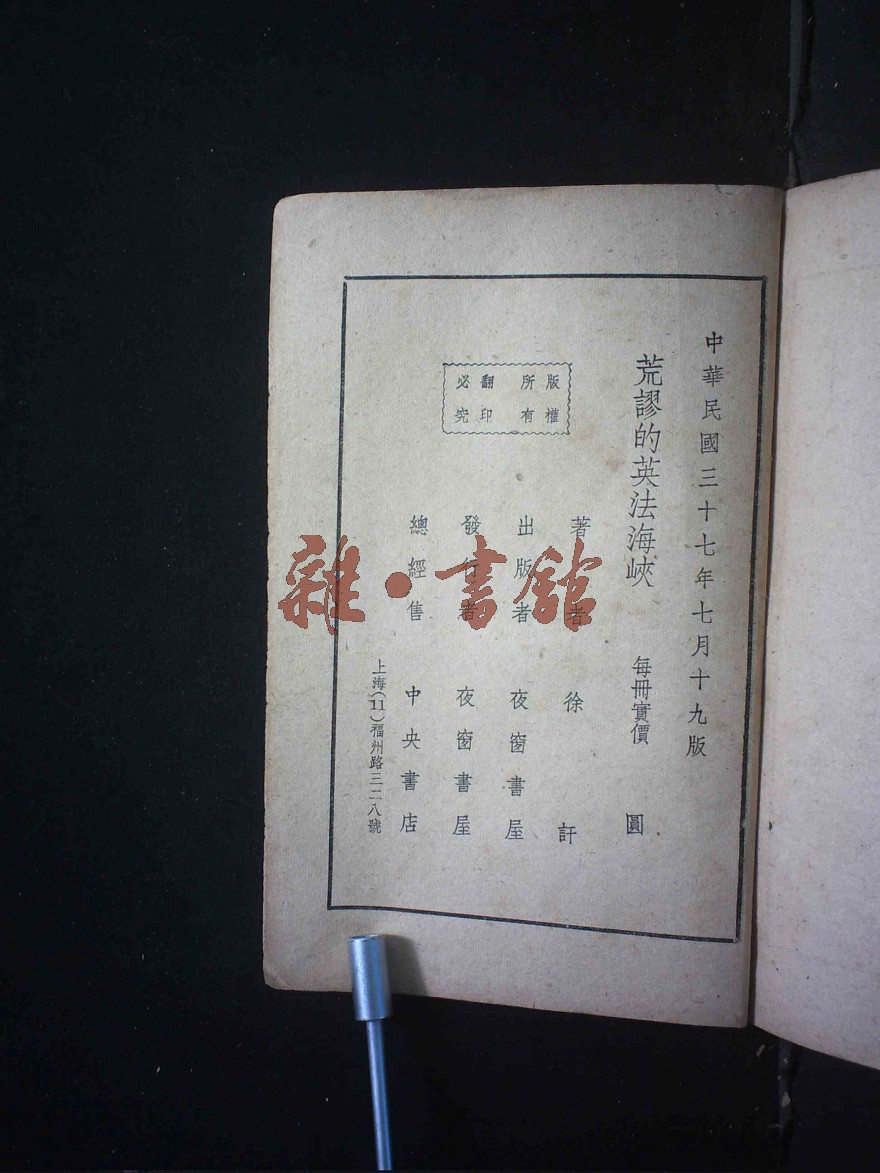 中華民國三十七年七月十九版
荒謬的英法海峽 每冊實價 圓
著者 徐訏
出版者 夜窗書屋
發行者 夜窗書屋
總經售 中央書店
上海(11)福州路三二八號
版權
所有
翻印
必究
雜·書館